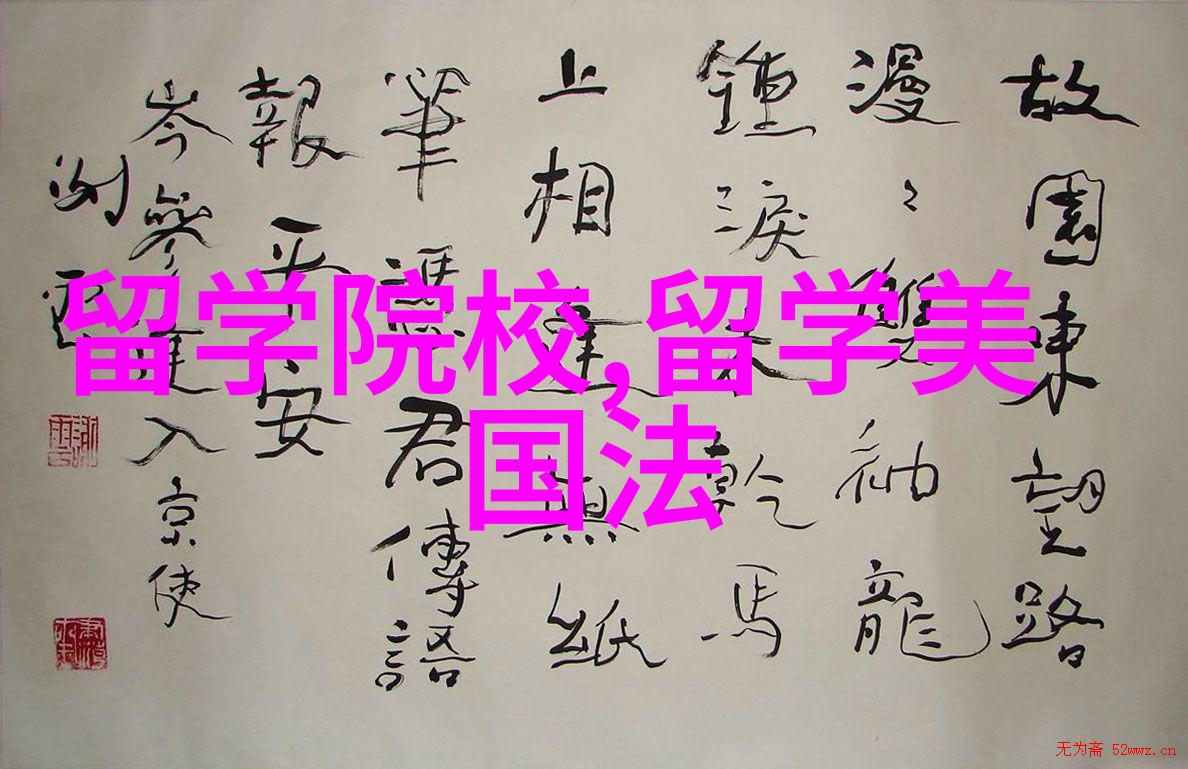 故園東望路
漫〻雙袖龍
鍾淚未乾馬
上相逢無紙
筆憑君傳語
報平安
岑參逢入京使
留学院校,留学美
国法
无为斋 52wwz.cn